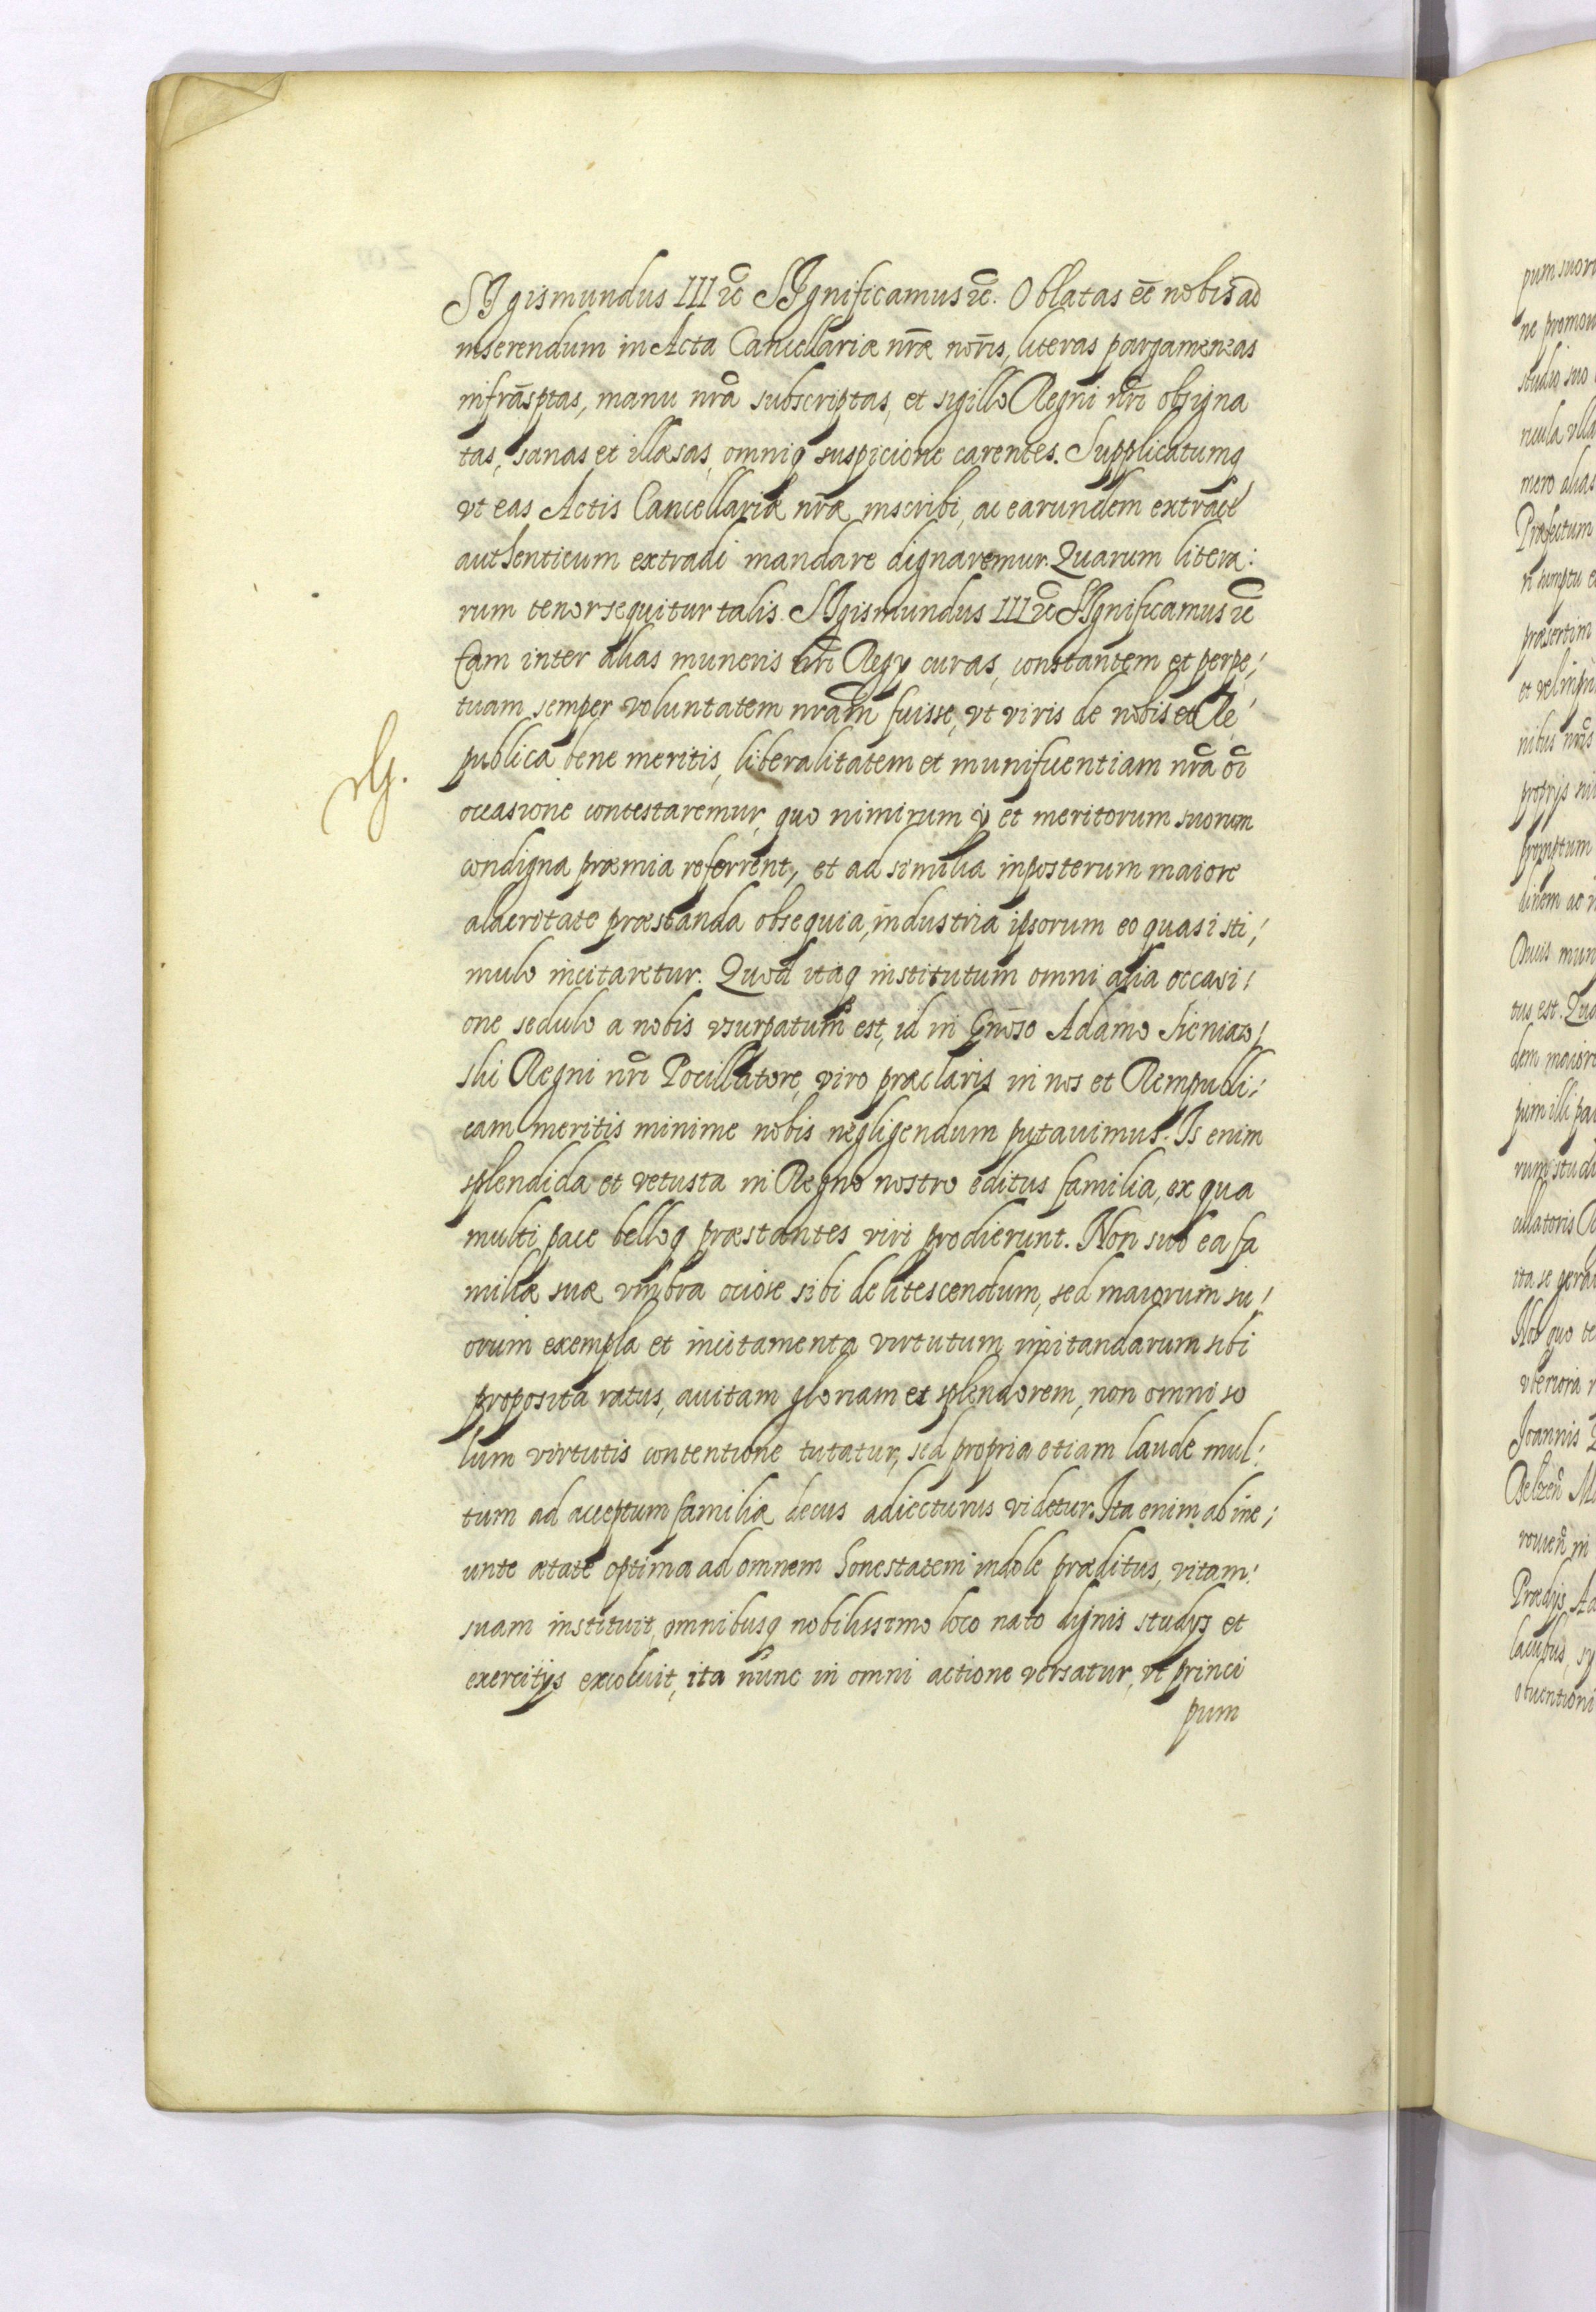 SIgismundus III ꝛc̄ SIgnificamus ꝛc̄. Oblatas ee̅ nobis ad
inserendum in Acta Cancellariæ nr̄æ nōris, literas pargameneas
infrāsptas, manu nr̄a subscriptas, et sigillo Regni nr̄i obsigna
tas, sanas et illæsas, omniq suspicione carentes. Supplicatumq
vt eas Actis Cancellariæ nr̄æ inscribi, ac earundem extract
authenticum extradi mandare dignaremur. Quarum litera:
rum tenor sequitur talis. SIgismundus III ꝛc̄ SIgnificamus ꝛc̄
Eam inter alias muneris nr̄i Regÿ curas, constantem et perpe:
tuam semper voluntatem nr̄am fuisse, vt viris de nobis et Re
publica bene meritis, liberalitatem et munificentiam nr̄a oı̄
occasione contestaremur, quo nimirum ÿ et meritorum suorum
condigna præmia referrent, et ad similia inposterum maiore
alacritate præstanda obsequia, industria ipsorum eo quasi sti:
mulo incitaretur. Quod itaq institutum omni alia occasi:
one sedulo a nobis vsurpatum est, id in Gnōso Adamo Sieniaw:
ski Regni nr̄i Pocillatore, viro præclaris in nos et Rempubli:
cam meritis minime nobis negligendum putauimus. Is enim
splendida et vetusta in Regno nostro editus familia, ex qua
multi pace belloq præstantes viri prodierunt. Non sub ea fa
miliæ suæ vmbra ociose sibi delitescendum, sed maiorum su:
orum exempla et incitamenta virtutum imitandarum sibi
proposita ratus, auitam gloriam et splendorem, non omni so
lum virtutis contentione tutatur, sed propria etiam laude mul:
tum ad acceptum familiæ decus adiecturus videtur. Ita enim ab ine:
unte ætate optima ad omnem honestatem indole præditus, vitam:
suam instituit, omnibusq nobilissimo loco nato dignis studÿs et
exercitÿs excoluit, ita nunc in omni actione versatur, vt princi
pum